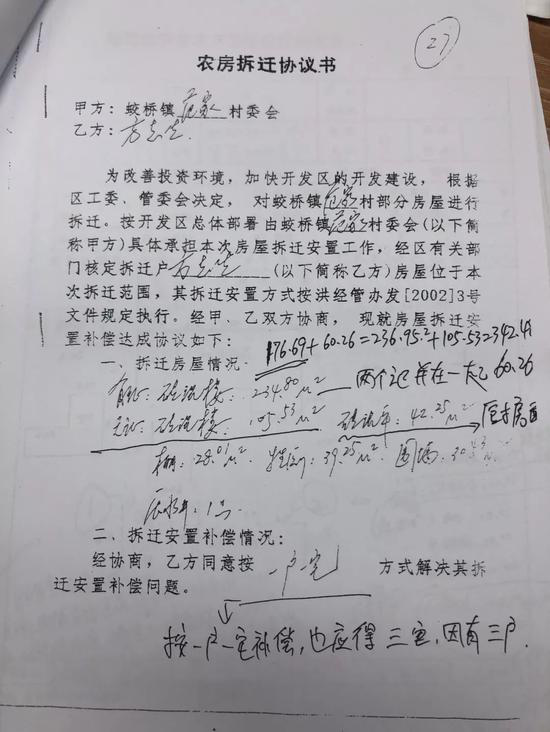 27
农房拆迁协议书
甲方：蛟桥镇范家村委会
乙方：
为改善投资环境，加快开发区的开发建设，根据
区工委、管委会决定，对蛟桥镇范家村部分房屋进行
拆迁。按开发区总体部署由蛟桥镇范家村委会(以下简
称甲方)具体承担本次房屋拆迁安置工作，经区有关部
门核定拆迁户 (以下简称乙方)房屋位于本
次拆迁范围，其拆迁安置方式按洪经管办发[2002]3号
文件规定执行。经甲、乙双方协商，现就房屋拆迁安
置补偿达成协议如下：
176.69+60.26=236.95²+105.53=342.41
一、拆迁房屋情况
有证：砖混楼：234.80m² 两个证并在一起 60.26
无证：砖混楼：105.53m² 砖混平：42.25m²
棚：28.01m² 39.25m² 围墙：
1
二、拆迁安置补偿情况：
经协商，乙方同意按 一户一宅 方式解决其拆
迁安置补偿问题。
按一户一宅补偿，也应得三宅，因有三户.